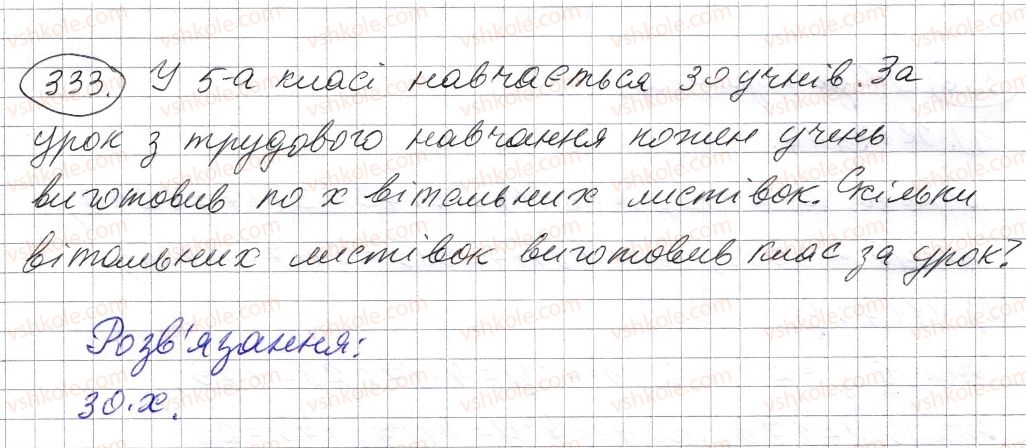 333. У 5-а класі навчається 30 учнів. За
урок з трудового навчання кожен учень
виготовив по х вітальних листівок. Скільки
вітальних листівок виготовив клас за урок?
Розв'язання:
30·х.